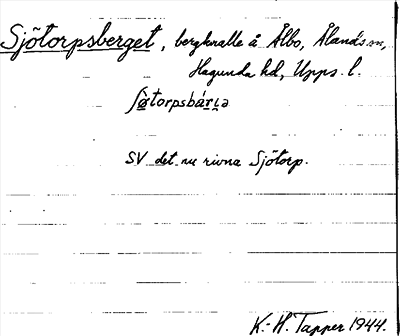 Sjötorpsberget, bergknalle å Ålbo, Ålands sn,
Hagunda hd, Upps. l.
ʃø̀torpsbár̯i̯ə
SV det nu rivna Sjötorp.
K.-H. Tapper 1944.